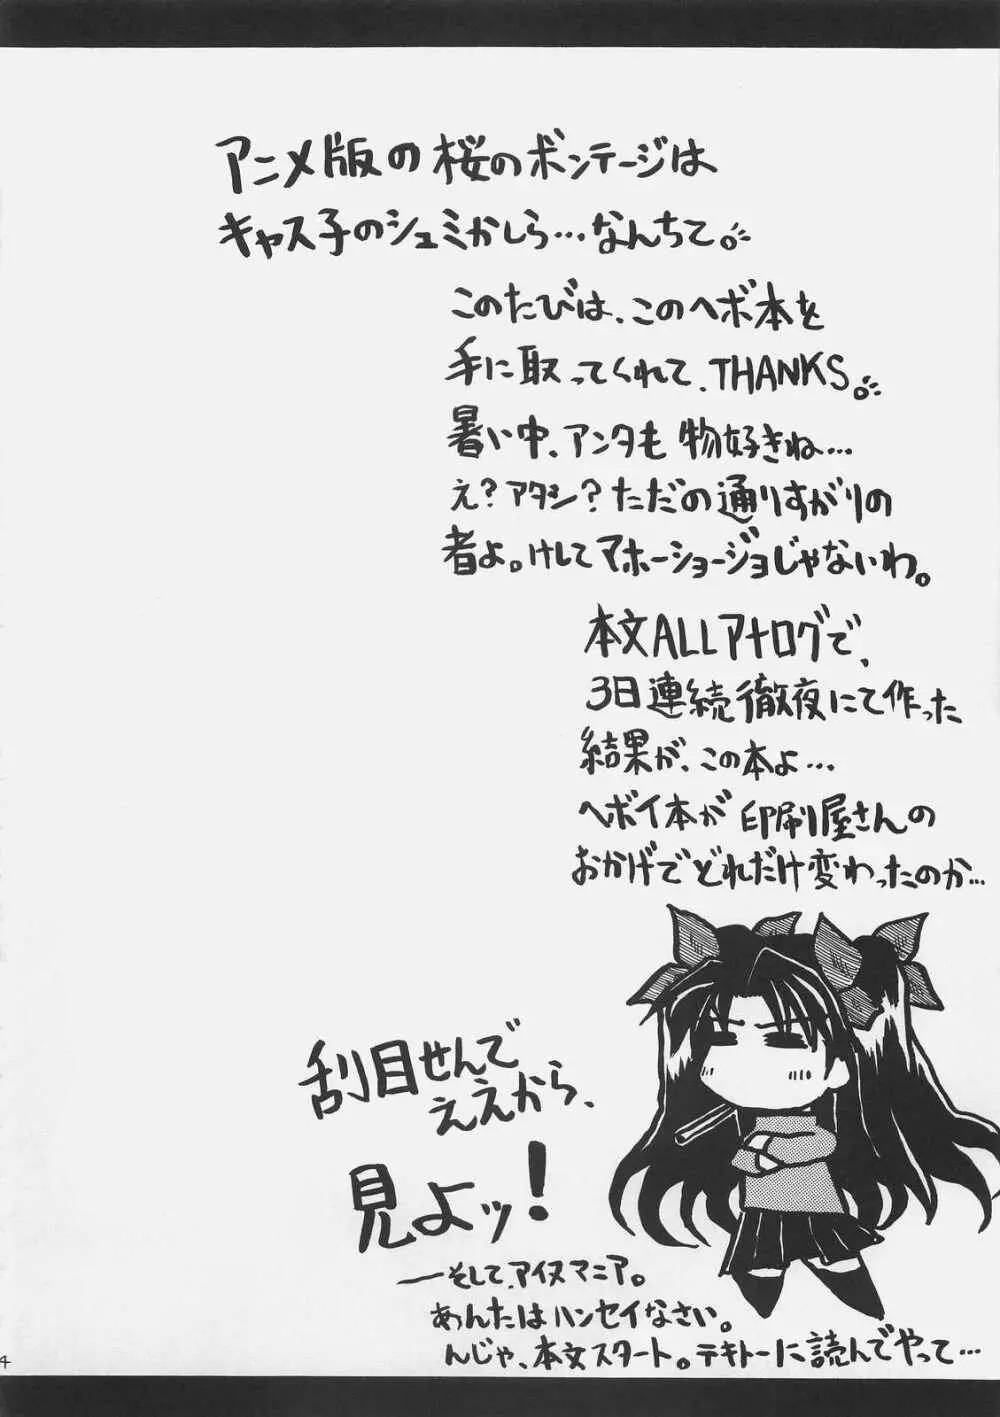 アニメ版の桜のボンテージは
キャス子のシュミかしら…なんちて。
このたびは、このヘボ本を
手に取ってくれて、THANKS。
暑い中、アンタも物好きね…
え？アタシ？ただの通りすがりの
者よ。けしてマホーショージョじゃないわ。
本文ALLアナログで、
3日連続徹夜にて作った
結果が、この本よ…
ヘボイ本が印刷屋さんの
おかげでどれだけ変わったのか…
刮目せんで
ええから、
見よッ！
――そして、アイヌマニア。
あんたはハンセイなさい。
んじゃ、本文スタート。テキトーに読んでやって…
4